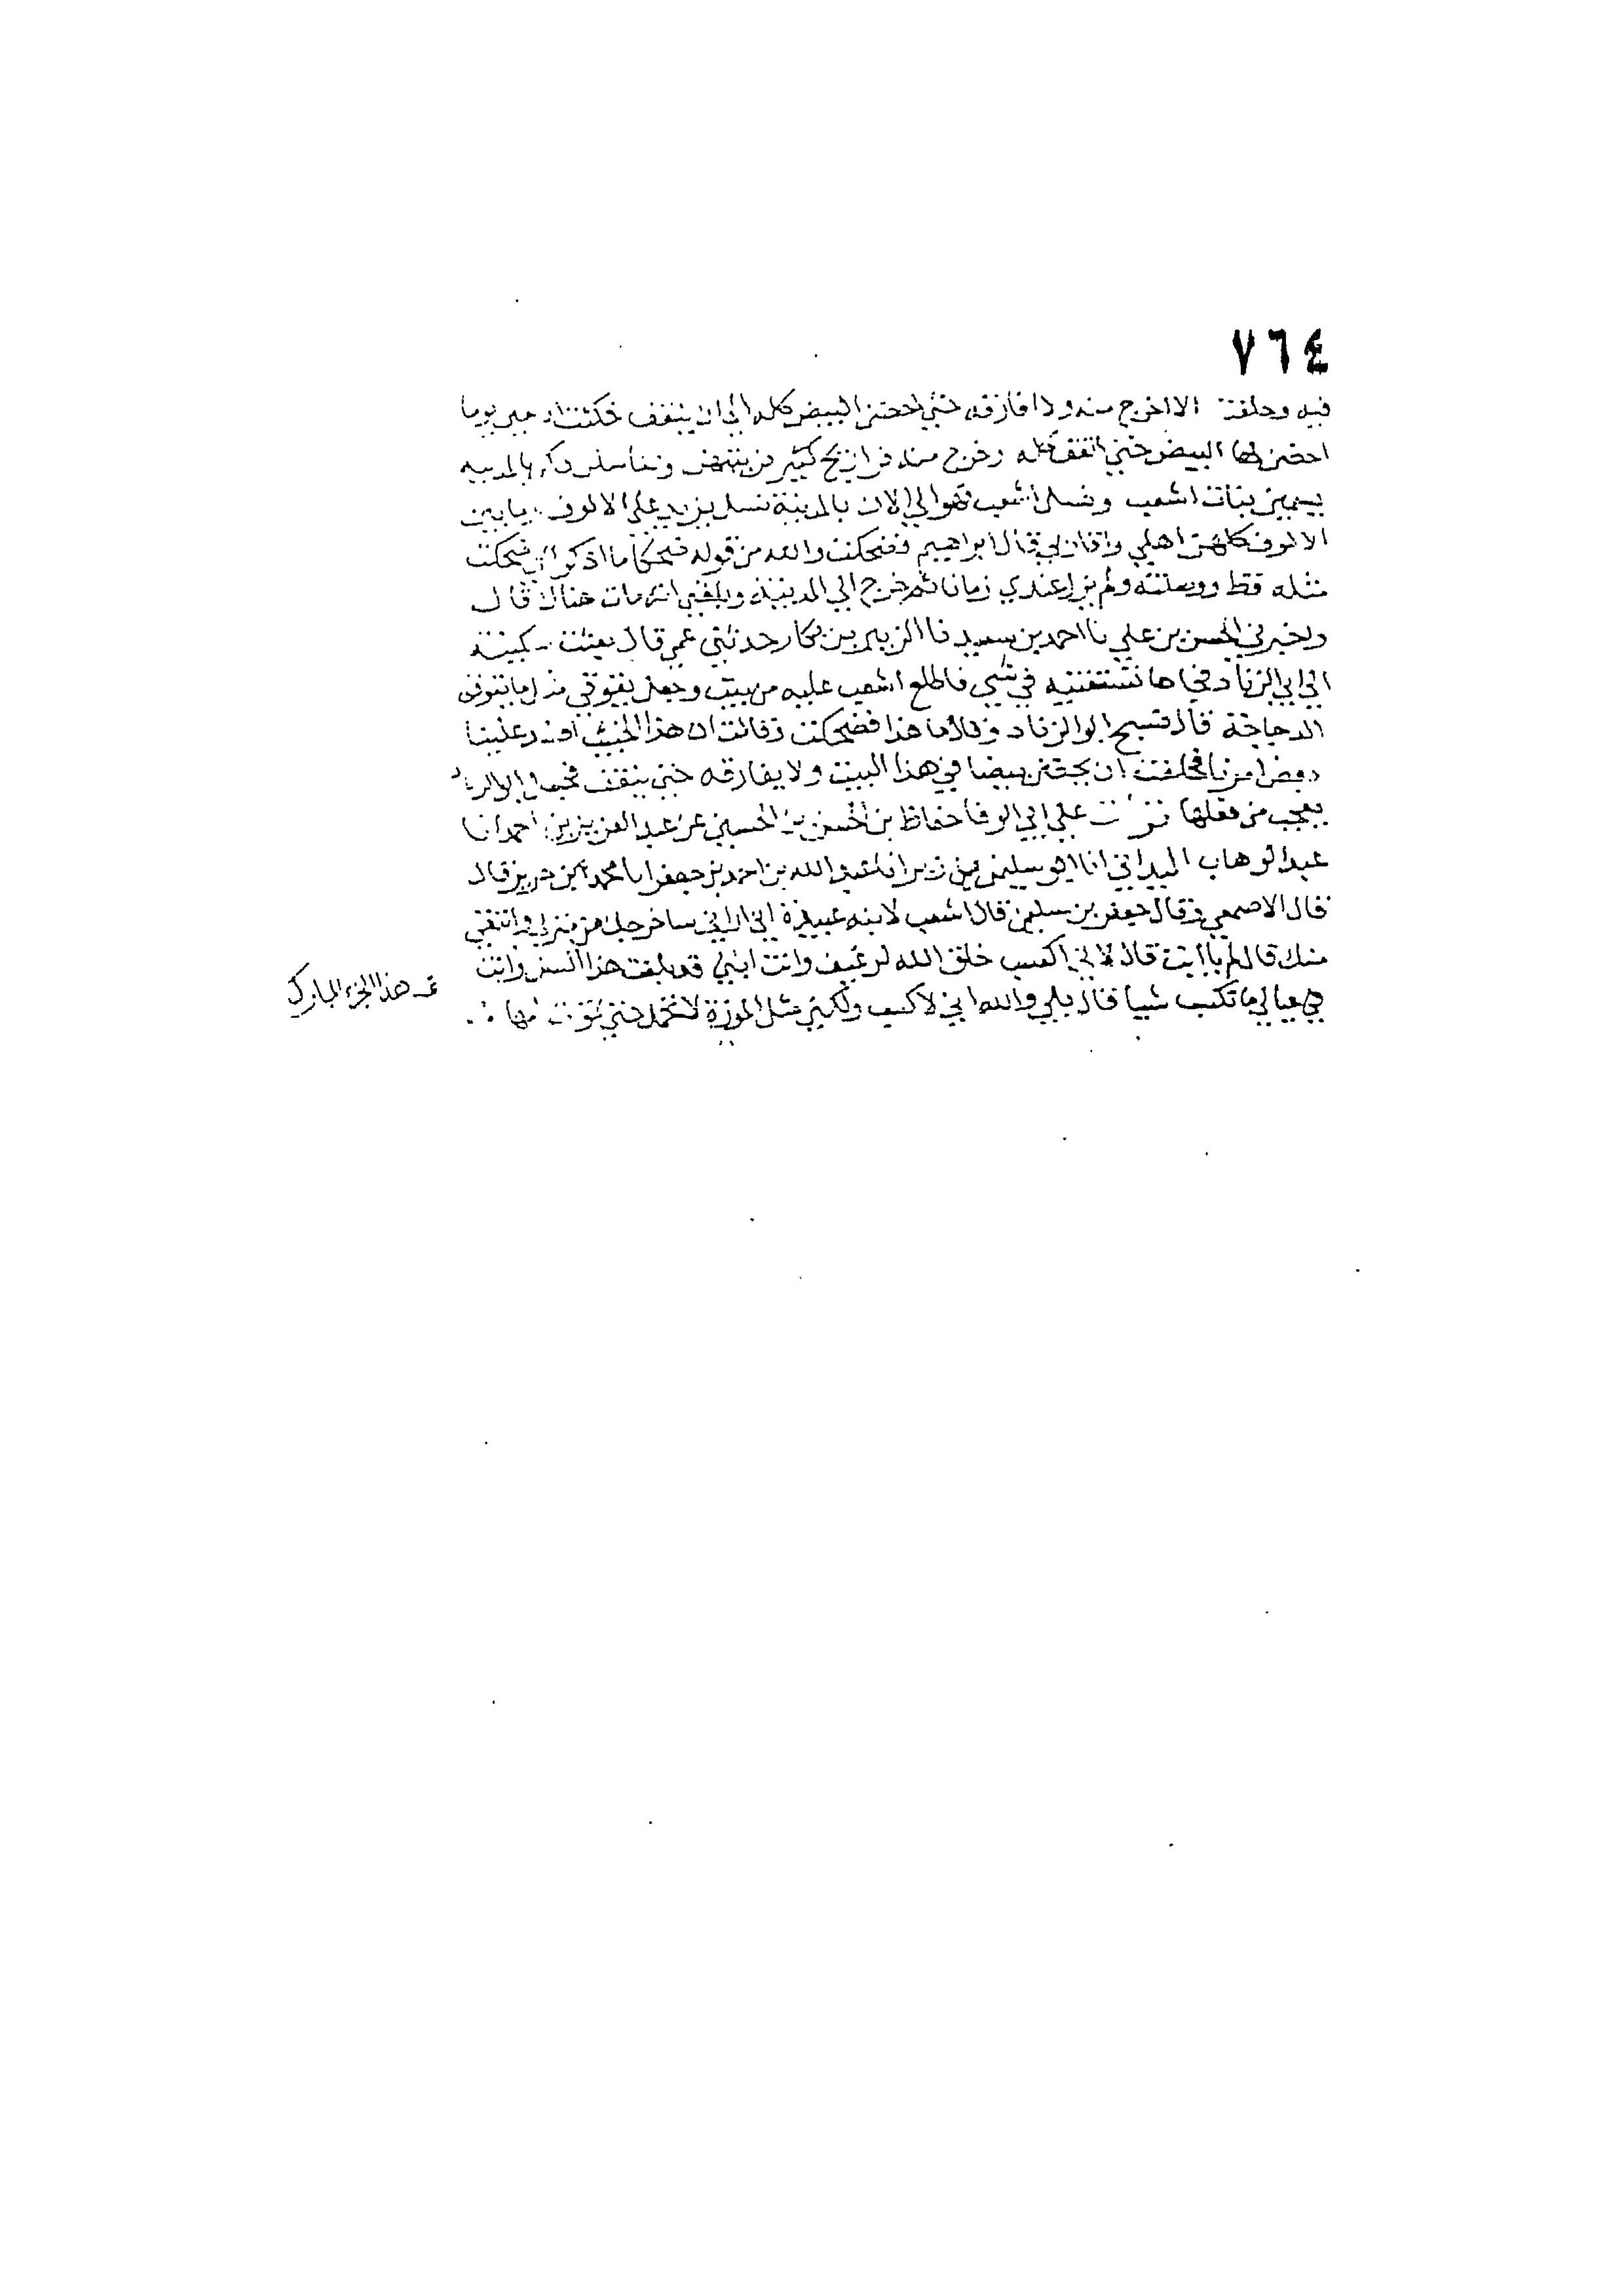 ٧٦٤
فيه وحلفت الا اخرج منه ولا افارقه حتى احضن البيض كله الى ان ينقف فمكثت اربعين يوما
احضن لها البيض حتى انقف كله وخرج منه فراريج كثير فربيتهن وتناسلن بالمدينة
يسمين بنات اشعب ونسل اشعب فهو الى الان بالمدينة نسل يزيد على الالوف ما بين
الالوف كلهن اهلي واقاربي قال ابراهيم فضحكت والله من قوله ضحكا ما اذكر اني ضحكت
مثله قط ووصلته ولم يزل عندي زمانا ثم خرج الى المدينة وبلغني انه مات هناك قال
واخبرني الحسن بن علي نا احمد بن سعيد نا الزبير بن بكار حدثني عمي قال بعثت سكينة
الى ابي الزناد فجاها تستفتيه في شي فاطلع اشعب عليه من بيت وجعل يقوقي مثل ما تقوقي
الدجاجة قال فسبح ابو الزناد وقال ما هذا فضحكت وقالت ان هذا الخبيث افسد علينا
بعض امرنا فحلفت ان يحضن بيضا في هذا البيت ولا يفارقه حتى ينقف فجعل ابو الزناد
يعجب من فعلها قرات على ابي الوفا حفاظ بن الحسن بن الحسين عن عبد العزيز بن احمد انا
عبد الوهاب الميداني انا ابو سليمن بن زبر انا عبد الله بن احمد بن جعفر انا محمد بن جرير قال
قال الاصمعي وقال جعفر بن سليمن قال اشعب لابنه عبيدة اني اراني ساخرجك من منزلي وانتفي
منك قال لم يا ابت قال لاني اكسب خلق الله لرغيف وانت ابني قد بلغت هذا السن وانت
في عيالي ما تكسب شيا قال بلى والله اني لاكسب ولكني مثل الموزة لا تحمل حتى تموت امها
تم هذا الجزء المبارك